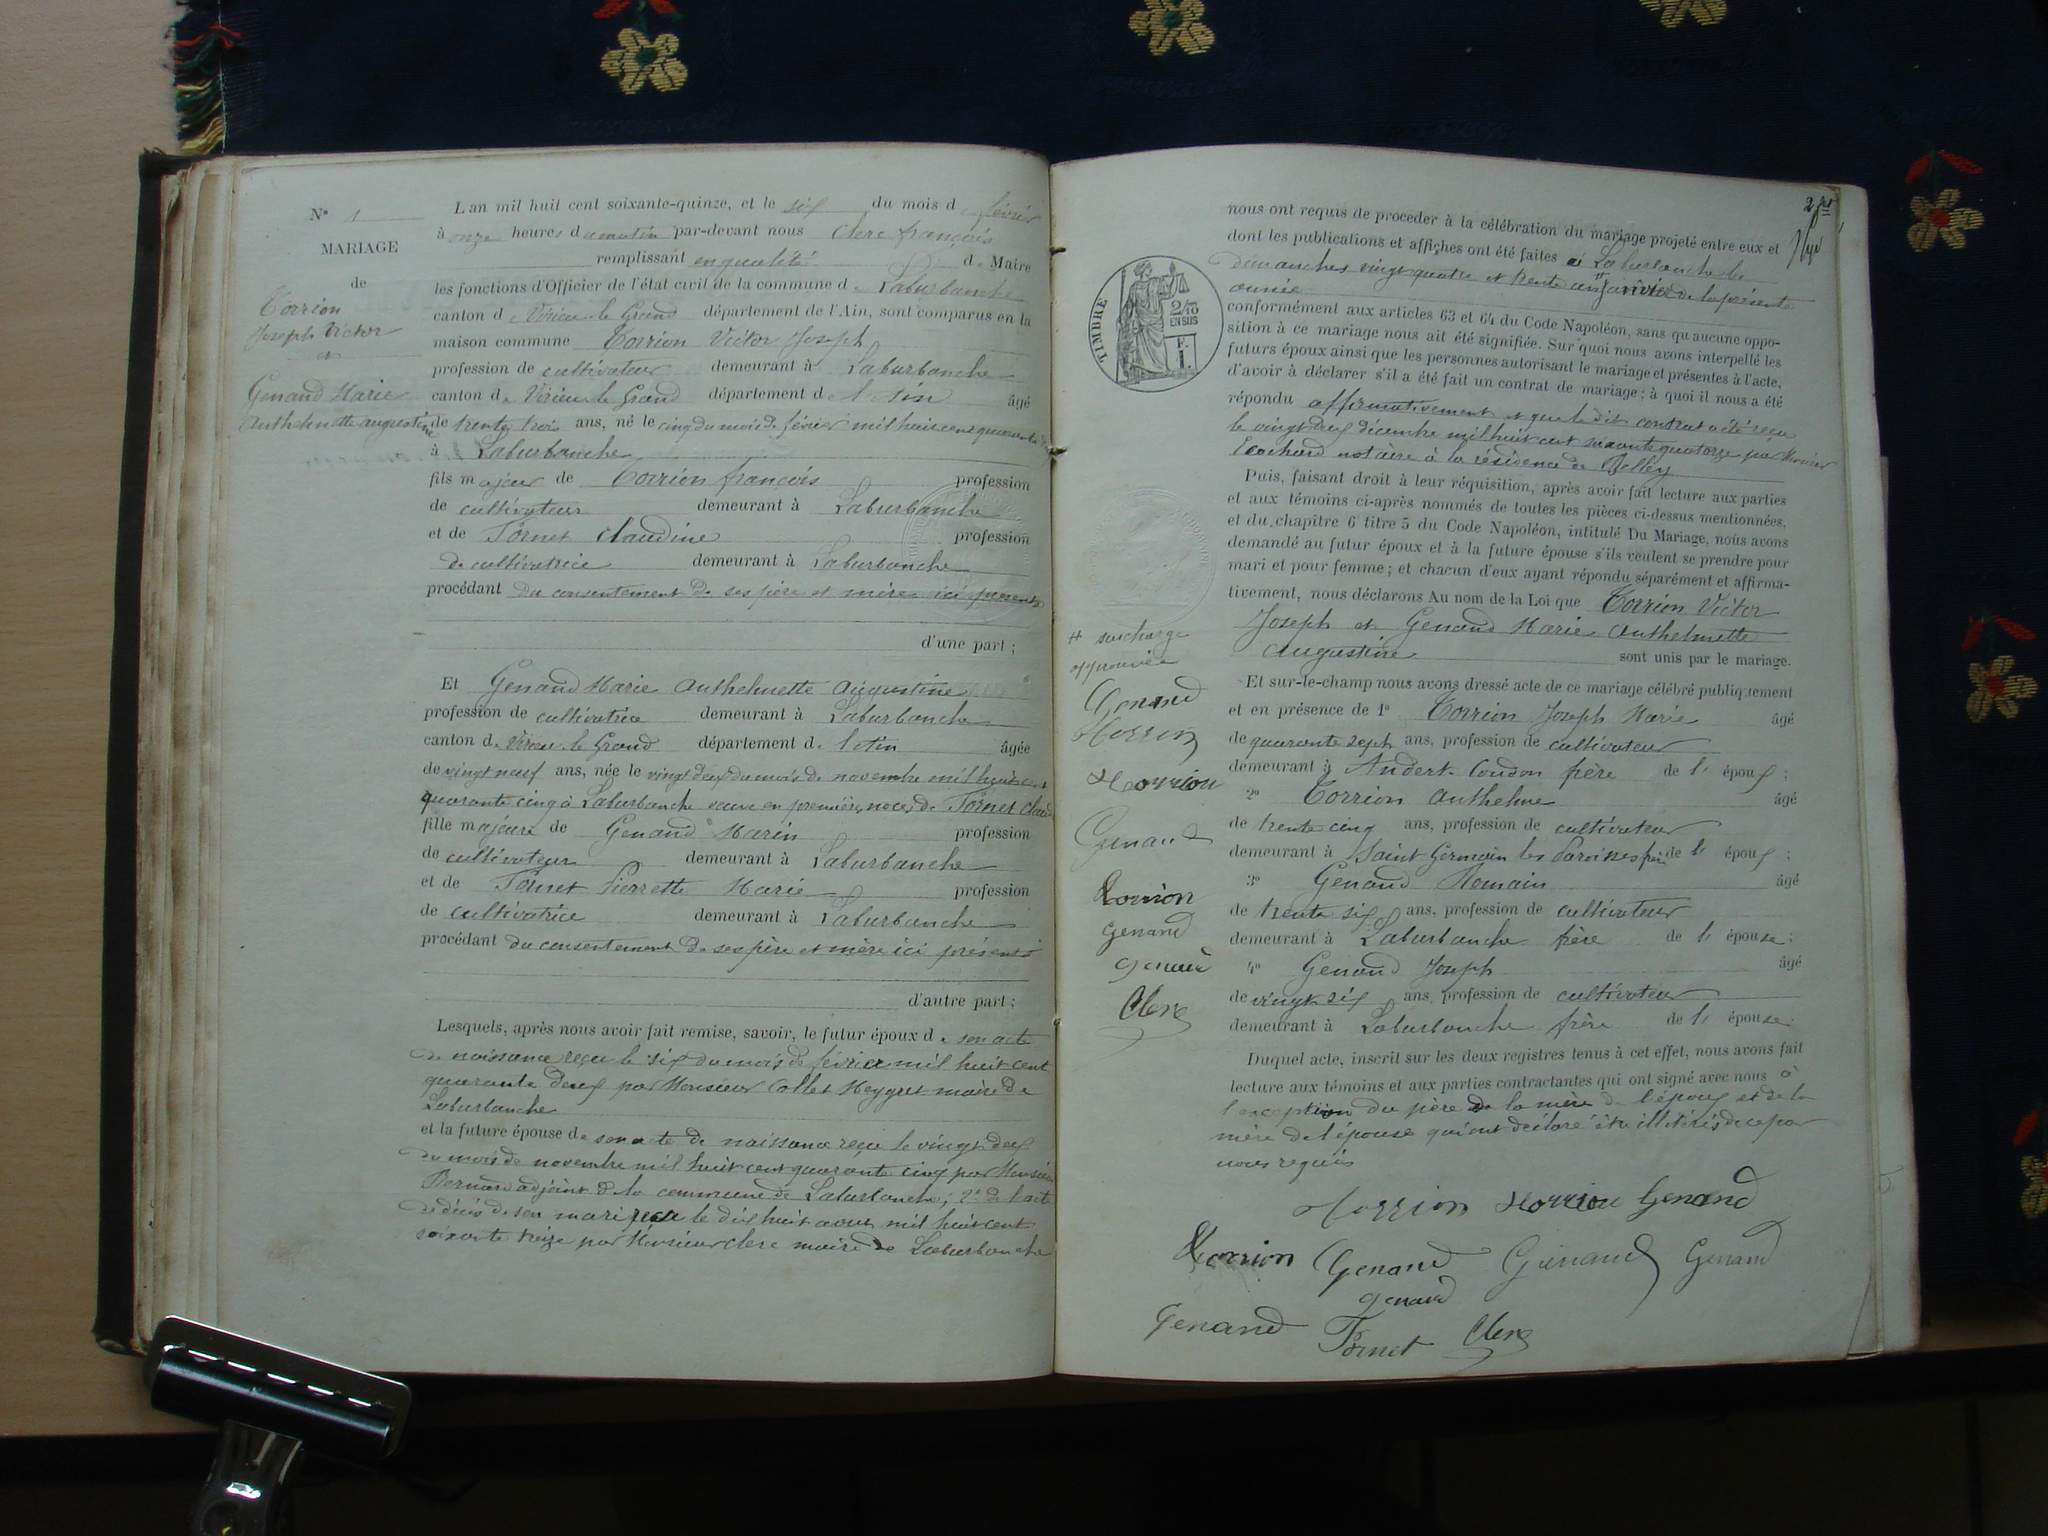 N° 1
MARIAGE
de
Torrion
Joseph Victor
et
Genand Marie
Anthelmette Augustine
L'an mil huit cent soixante-quinze, et le six du mois de février
à onze heures du matin par-devant nous Clerc françois
remplissant en qualité de Maire
les fonctions d'Officier de l'état civil de la commune de Laburbanche
canton de Virieu-le-Grand département de l'Ain, sont comparus en la
maison commune Torrion Victor Joseph
profession de cultivateur demeurant à Laburbanche
canton de Virieu-le-Grand département de l'Ain âgé
de trente trois ans, né le cinq du mois de février mil huit cent quarante
à Laburbanche
fils majeur de Torrion françois profession
de cultivateur demeurant à Laburbanche
et de Fornet Claudine profession
de cultivatrice demeurant à Laburbanche
procédant du consentement de ses père et mère ici présents
d'une part ;
Et Genand Marie Anthelmette Augustine
profession de cultivatrice demeurant à Laburbanche
canton de Virieu-le-Grand département de l'Ain âgée
de vingt neuf ans, née le vingt deux du mois de novembre mil huit cent
quarante cinq à Laburbanche veuve en premières noces de Fornet Claude
fille majeure de Genand Marin profession
de cultivateur demeurant à Laburbanche
et de Fornet Pierrette Marie profession
de cultivatrice demeurant à Laburbanche
procédant du consentement de ses père et mère ici présents
d'autre part ;
Lesquels, après nous avoir fait remise, savoir, le futur époux de son acte
de naissance reçu le six du mois de février mil huit cent
quarante deux par Monsieur Collet Meygret maire de
Laburbanche
et la future épouse de son acte de naissance reçu le vingt deux
du mois de novembre mil huit cent quarante cinq par Monsieur
Bernard adjoint de la commune de Laburbanche ; 2° de l'acte
de décès de son mari reçu le dix huit août mil huit cent
soixante treize par Monsieur Clerc maire de Laburbanche
2
TIMBRE
2/10
EN SUS
F.
1.
nous ont requis de proceder à la célébration du mariage projeté entre eux et
dont les publications et affiches ont été faites à Laburbanche les
dimanches vingt quatre et trente un janvier de la présente
année
conformément aux articles 63 et 64 du Code Napoléon, sans qu'aucune oppo-
sition à ce mariage nous ait été signifiée. Sur quoi nous avons interpellé les
futurs époux ainsi que les personnes autorisant le mariage et présentes à l'acte,
d'avoir à déclarer s'il a été fait un contrat de mariage ; à quoi il nous a été
répondu affirmativement et que le dit contrat a été reçu
le vingt deux décembre mil huit cent soixante quatorze par Monsieur
Cochard notaire à la résidence de Belley
Puis, faisant droit à leur réquisition, après avoir fait lecture aux parties
et aux témoins ci-après nommés de toutes les pièces ci-dessus mentionnées,
et du chapitre 6 titre 5 du Code Napoléon, intitulé Du Mariage, nous avons
demandé au futur époux et à la future épouse s'ils veulent se prendre pour
mari et pour femme ; et chacun d'eux ayant répondu séparément et affirma-
tivement, nous déclarons Au nom de la Loi que Torrion Victor
Joseph et Genand Marie Anthelmette
Augustine sont unis par le mariage.
Et sur-le-champ nous avons dressé acte de ce mariage célébré publiquement
et en présence de 1° Torrion Joseph Marie âgé
de quarante sept ans, profession de cultivateur
demeurant à Andert-Condon frère de l'époux ;
2° Torrion Anthelme âgé
de trente cinq ans, profession de cultivateur
demeurant à Saint Germain les Paroisses frère de l'époux ;
3° Genand Romain âgé
de trente six ans, profession de cultivateur
demeurant à Laburbanche frère de l'épouse ;
4° Genand Joseph âgé
de vingt six ans, profession de cultivateur
demeurant à Laburbanche frère de l'épouse.
Duquel acte, inscrit sur les deux registres tenus à cet effet, nous avons fait
lecture aux témoins et aux parties contractantes qui ont signé avec nous à
l'exception du père de la mère de l'époux et de la
mère de l'épouse qui ont déclaré être illitérés de ce par
nous requis
# surcharge
approuvée
Genand
Torrion
Torrion
Genand
Torrion
Genand
Genand
Clerc
Torrion Torrion Genand
Torrion Genand Genand Genand
Genand
Genand Fornet Clerc